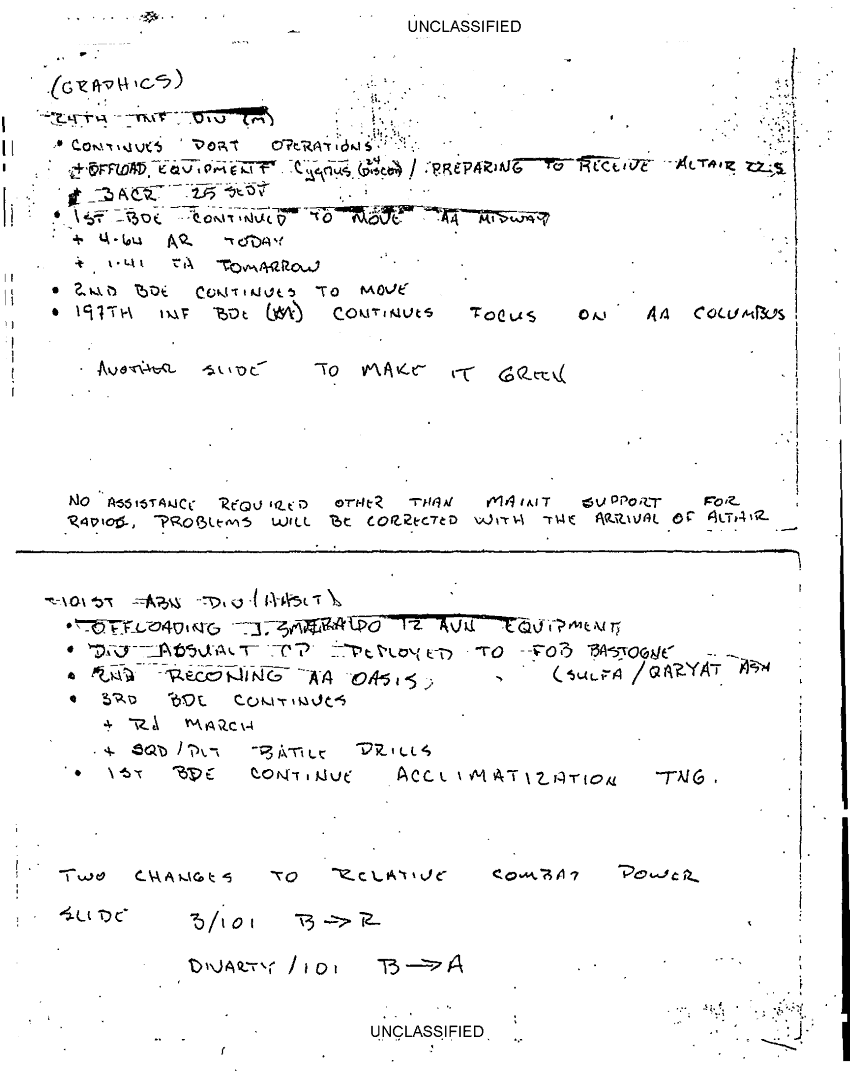 UNCLASSIFIED
(GRAPHICS)
24TH INF DIV (M)
• CONTINUES PORT OPERATIONS
+ OFFLOAD EQUIPMENT Cygnus / PREPARING TO RECEIVE ALTAIR
3ACR 25 SEPT
• 1ST BDE CONTINUED TO MOVE AA MIDWAY
+ 4-64 AR TODAY
+ 1-41 FA TOMARROW
• 2ND BDE CONTINUES TO MOVE
• 197TH INF BDE CONTINUES FOCUS ON AA COLUMBUS
ANOTHER SLIDE TO MAKE IT GREEN
NO ASSISTANCE REQUIRED OTHER THAN MAINT SUPPORT FOR
RADIOS, PROBLEMS WILL BE CORRECTED WITH THE ARRIVAL OF ALTAIR
101ST ABN DIV (AASLT)
• OFFLOADING 12 AVN EQUIPMENT
• DIV CP DEPLOYED TO FOB BASTOGNE
• 2ND RECONING AA OASIS, (SULFA / QARYAT
• 3RD BDE CONTINUES
+ Rd MARCH
+ SQD/PLT BATTLE DRILLS
• 1ST BDE CONTINUE ACCLIMATIZATION TNG.
TWO CHANGES TO RELATIVE COMBAT POWER
SLIDE 3/101 B → R
DIVARTY/101 B → A
UNCLASSIFIED